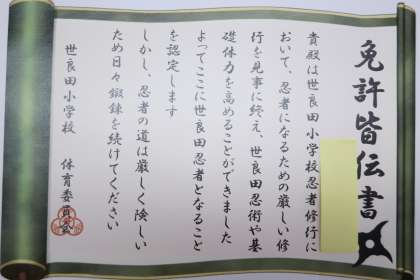 免許皆伝書
貴殿は世良田小学校忍者修行に
おいて、忍者になるための厳しい修
行を見事に終え、世良田忍術や基
礎体力を高めることができました
よってここに世良田忍者となること
を認定します
しかし、忍者の道は厳しく険しい
ため日々鍛錬を続けてください
世良田小学校 体育委員会